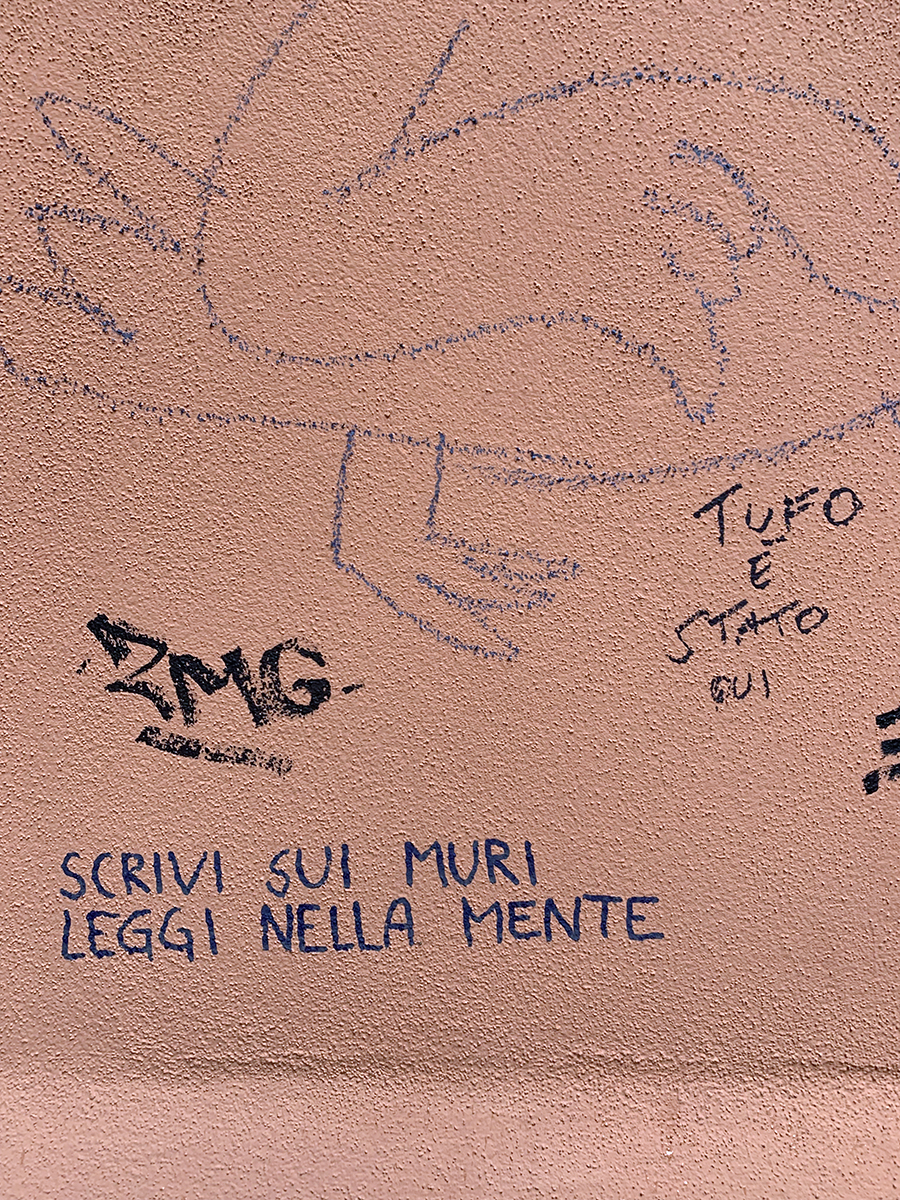 TUFO
È
STATO
QUI
SCRIVI SUI MURI
LEGGI NELLA MENTE